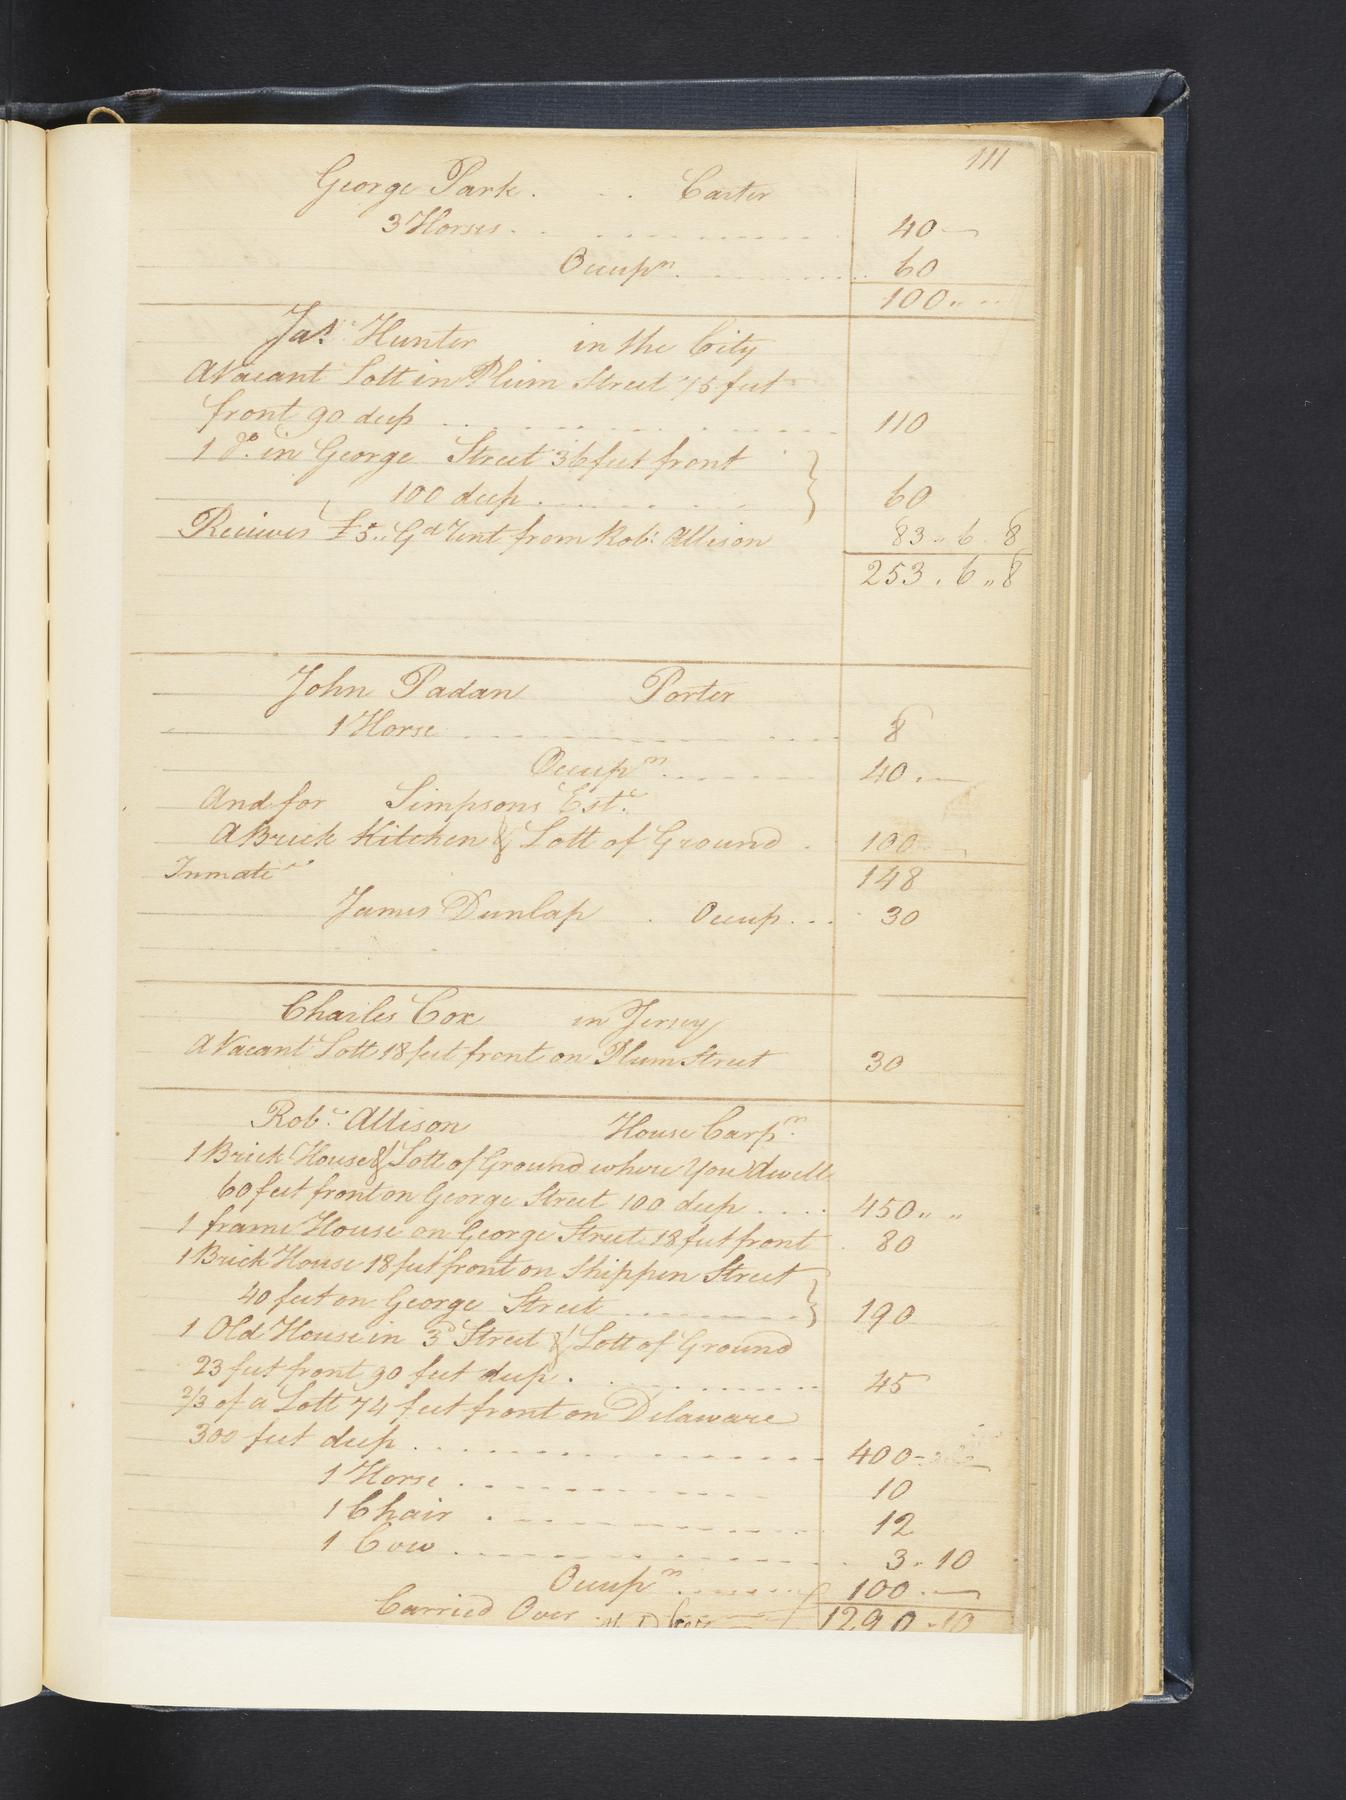 111
George Park . . . Carter
3 Horses . . . 40 —
Occupn. . . . 60
100 „ „
Jas. Hunter in the City
A Vacant Lott in Plum Street 75 feet
front 90 deep . . . 110
1 do. in George Street 36 feet front
100 deep . . . 60
Recieves £5 „ Gd Rent from Robt. Allison 83 „ 6 „ 8
253 „ 6 „ 8
John Padan Porter
1 Horse . . . 8
Occupn. . . . 40 . —
And for Simpsons Este.
A Brick Kitchen & Lott of Ground . 100
Inmate 148
James Dunlap . Occup . . . 30
Charles Cox in Jersey
A Vacant Lott 18 feet front on Plum Street 30
Robt. Allison House Carpn.
1 Brick House & Lott of Ground where You dwell
60 feet front on George Street 100 deep . . . . 450 „ „
1 frame House on George Street 18 feet front . 80
1 Brick House 18 feet front on Shippen Street
40 feet on George Street . . . 190
1 Old House in 3d Street & Lott of Ground
23 feet front 90 feet deep . . . 45
2/3 of a Lott 74 feet front on Delaware
300 feet deep . . . 400
1 Horse . . . 10
1 Chair . . . 12
1 Cow . . . 3 „ 10
Occupn. . . . 100 . —
Carried Over 1290 „ 10